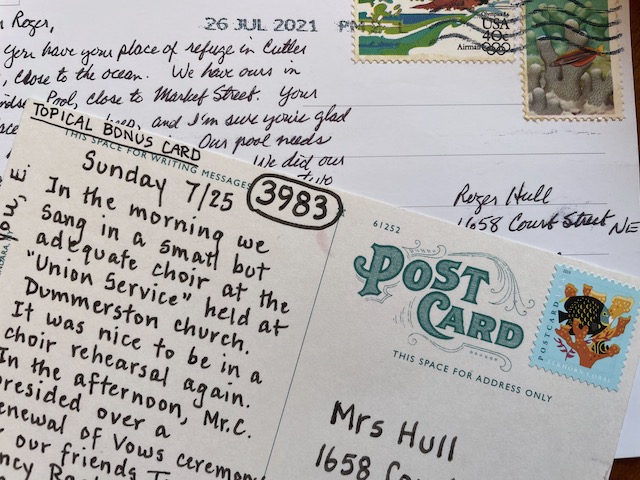 Roger,
26 JUL 2021 PM
you have your place of refuge in Cutler
, close to the ocean. We have ours in
Pool, close to Market Street. Your
and I'm sure you're glad
Our pool needs
We did our
USA
40c
Airmail
Roger Hull
1658 Court Street NE
TOPICAL BONUS CARD
THIS SPACE FOR WRITING MESSAGES
Sunday 7/25
3983
In the morning we
sang in a small but
adequate choir at the
"Union Service" held at
Dummerston church.
It was nice to be in a
choir rehearsal again.
In the afternoon, Mr. C.
presided over a
enewal of Vows ceremony
our friends
you, E.
61252
POST
CARD
THIS SPACE FOR ADDRESS ONLY
POSTCARD
Mrs Hull
1658 Cou